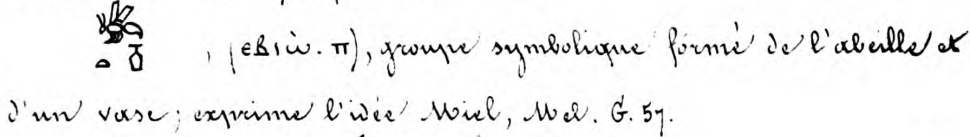 , (ⲉⲃⲓⲱ̀. ⲡ), groupe symbolique formé de l'abeille et
d'un vase; exprime l'idée Miel, Mel. G. 57.